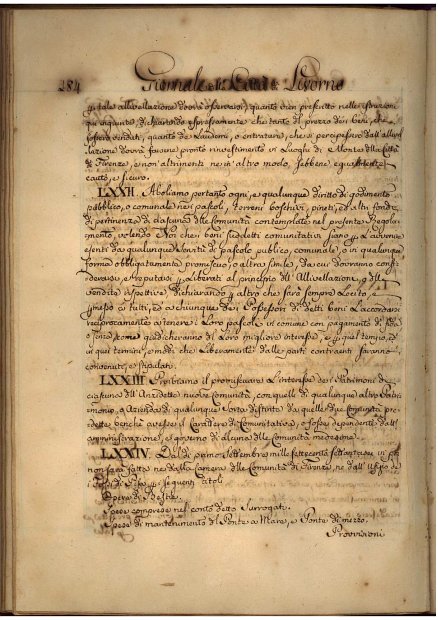 284 Giornale di Città di Livorno
tale allivellazione dovrà osservarsi quanto vien prescritto nelle istruzioni
dichiarando espressamente che tanto il prezzo dei beni, che
fossero venduti, quanto de Laudemi, o entrature, che si percipessero dall'allivel
lazione dovrà farsene pronto rinvestimento in Luoghi di Monte della Città
di Firenze, e non altrimenti ne in altro modo, sebbene egualmente
cauto, e sicuro.
LXXII. Aboliamo pertanto ogni, e qualunque diritto di godimento
pubblico, o comunale nei pascoli, terreni boschivi, pineti, ed altri fondi
di pertinenza di ciascuna delle Comunità contemplate nel presente Regola
mento, volendo Noi che i beni suddetti comunitativi siano
esenti da qualunque servitù di Pascolo publico, comunale, o in qualunque
forma obbligatamente promiscuo, o altra simile, da cui dovranno consi
derarsi, e reputarsi Liberati al principio dell'Allivellazione, o della
vendita rispettiva, dichiarando altro che sarà sempre Lecito, e
permesso a tutti, ed a chiunque dei Possessori di detti beni L'accordarsi
reciprocamente a tenere i Loro pascoli in comune con pagamento di fida
o senza, come giudicheranno di Loro migliore interesse, e per quel tempo, ed
in quei termini, e modi che Liberamente dalle parti contraenti saranno
convenuti, e stipulati.
LXXIII Proibiamo il promiscuare L'interesse dei Patrimoni di
ciascuna dell'Anzidette nuove Comunità, con quelli di qualunque altro Patri
monio, o Azienda di qualunque sorta distinta da quelle due Comunità pre
dette benchè avesse il Carattere di Comunitativa, o fosse dependente dall'
amministrazione, e governo di alcuna delle Comunità medesime.
LXXIV. Dal dì primo Settembre mille settecento settantanove in poi
non sarà fatta ne dalla Camera delle Comunità di Firenze, ne dall'Ufizio de
Fossi di Pisa seguenti titoli
Opera di Bestie.
Spese comprese nel conto detto Surrogati.
Spese di mantenimento del Ponte a Mare, e Ponte di mezzo.
Provvisioni